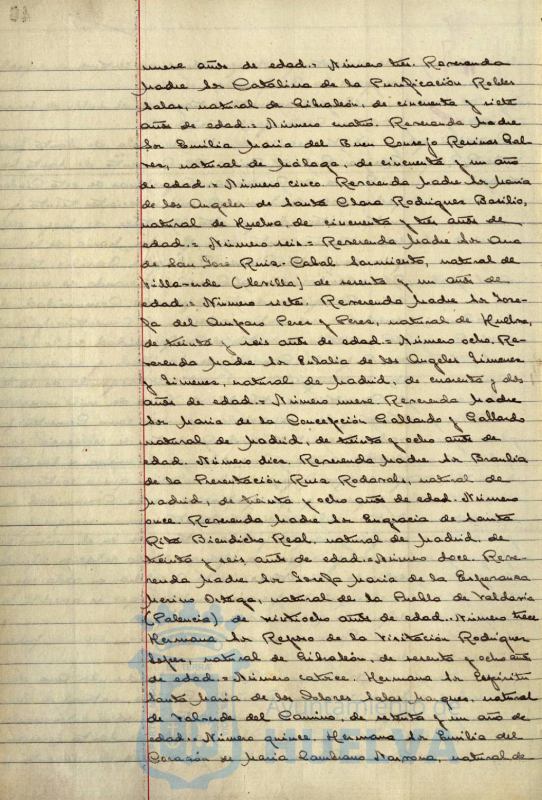 nueve años de edad.= Número tres. Reverenda
Madre Sor Catalina de la Purificación Robles
Salas, natural de Gibraleón, de cincuenta y siete
años de edad.= Número cuatro. Reverenda Madre
Sor Emilia Maria del Buen Consejo Recinas Gal-
vez, natural de Málaga, de cincuenta y un año
de edad.= Número cinco. Reverenda Madre Sor Maria
de los Angeles de Santa Clara Rodriguez Basilio,
natural de Huelva, de cincuenta y tres años de
edad.= Número seis= Reverenda Madre Sor Ana
de San José Ruiz-Cabal Sarmiento, natural de
Villaverde (Sevilla) de sesenta y un años de
edad.= Número siete. Reverenda Madre Sor Jose-
fa del Amparo Perez y Perez, natural de Huelva,
de treinta y seis años de edad.= Número ocho. Re-
verenda Madre Sor Eulalia de los Angeles Gimenez
y Gimenez, natural de Madrid, de cuarenta y dos
años de edad.= Número nueve. Reverenda Madre
Sor Maria de la Concepción Gallardo y Gallardo
natural de Madrid, de treinta y ocho años de
edad. Número diez. Reverenda Madre Sor Braulia
de la Presentación Ruiz natural de
Madrid, de treinta y ocho años de edad. Número
once. Reverenda Madre Sor Engracia de Santa
Rita Biendicho Real, natural de Madrid, de
treinta y seis años de edad.= Número doce. Reve-
renda Madre Sor Josefa Maria de la Esperanza
Merino Ortega, natural de la Puebla de Valdavia
(Palencia) de veintiocho años de edad. Número trece
Hermana Sor Refugio de la Visitación Rodriguez
Lopez, natural de Gibraleón, de sesenta y ocho años
de edad.= Número catorce. Hermana Sor Espiritu
Santo Maria de los Dolores Salas Marquez, natural
de Valverde del Camino, de setenta y un año de
edad.= Número quince. Hermana Sor Emilia del
Corazón de Maria Cambiano natural de
Ayuntamiento de
HUELVA